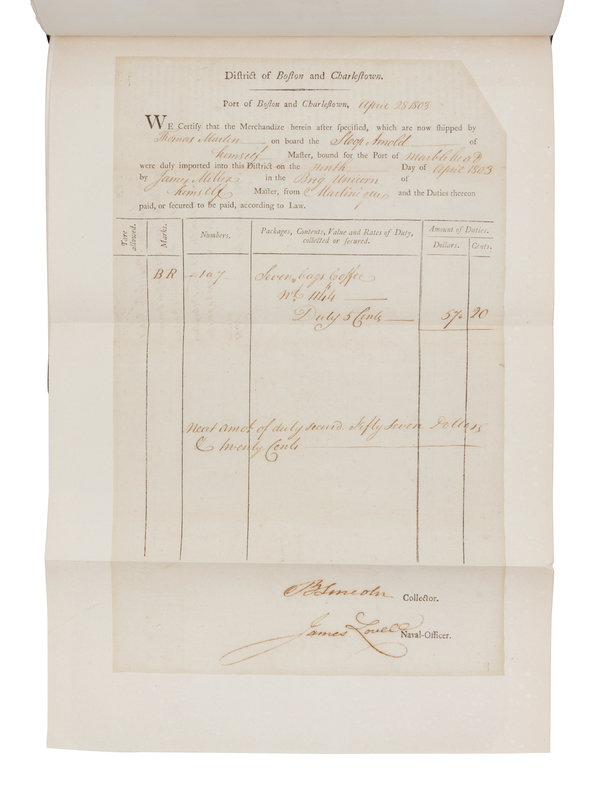 Diſtrict of Boſton and Charleſtown.
Port of Boſton and Charleſtown, April 28 1803
WE Certify that the Merchandize herein after ſpecified, which are now ſhipped by
Thomas Martin on board the Sloop Arnold of
himself Maſter, bound for the Port of Marblehead
were duly imported into this Diſtrict on the ninth Day of April 1803
by James in the Brig Unicorn of
himself Maſter, from Martinique and the Duties thereon
paid, or ſecured to be paid, according to Law.
Tare allowed. Marks. Numbers. Packages, Contents, Value and Rates of Duty, collected or ſecured. Amount of Duties.
Dollars. Cents.
BR 1 a 7 Seven bags Coffee
Wt 1144
Duty 5 Cents 57. 20
Neat amot. of duty secured Fifty Seven Dollars
& twenty Cents
B Lincoln Collector.
James Lovell Naval-Officer.